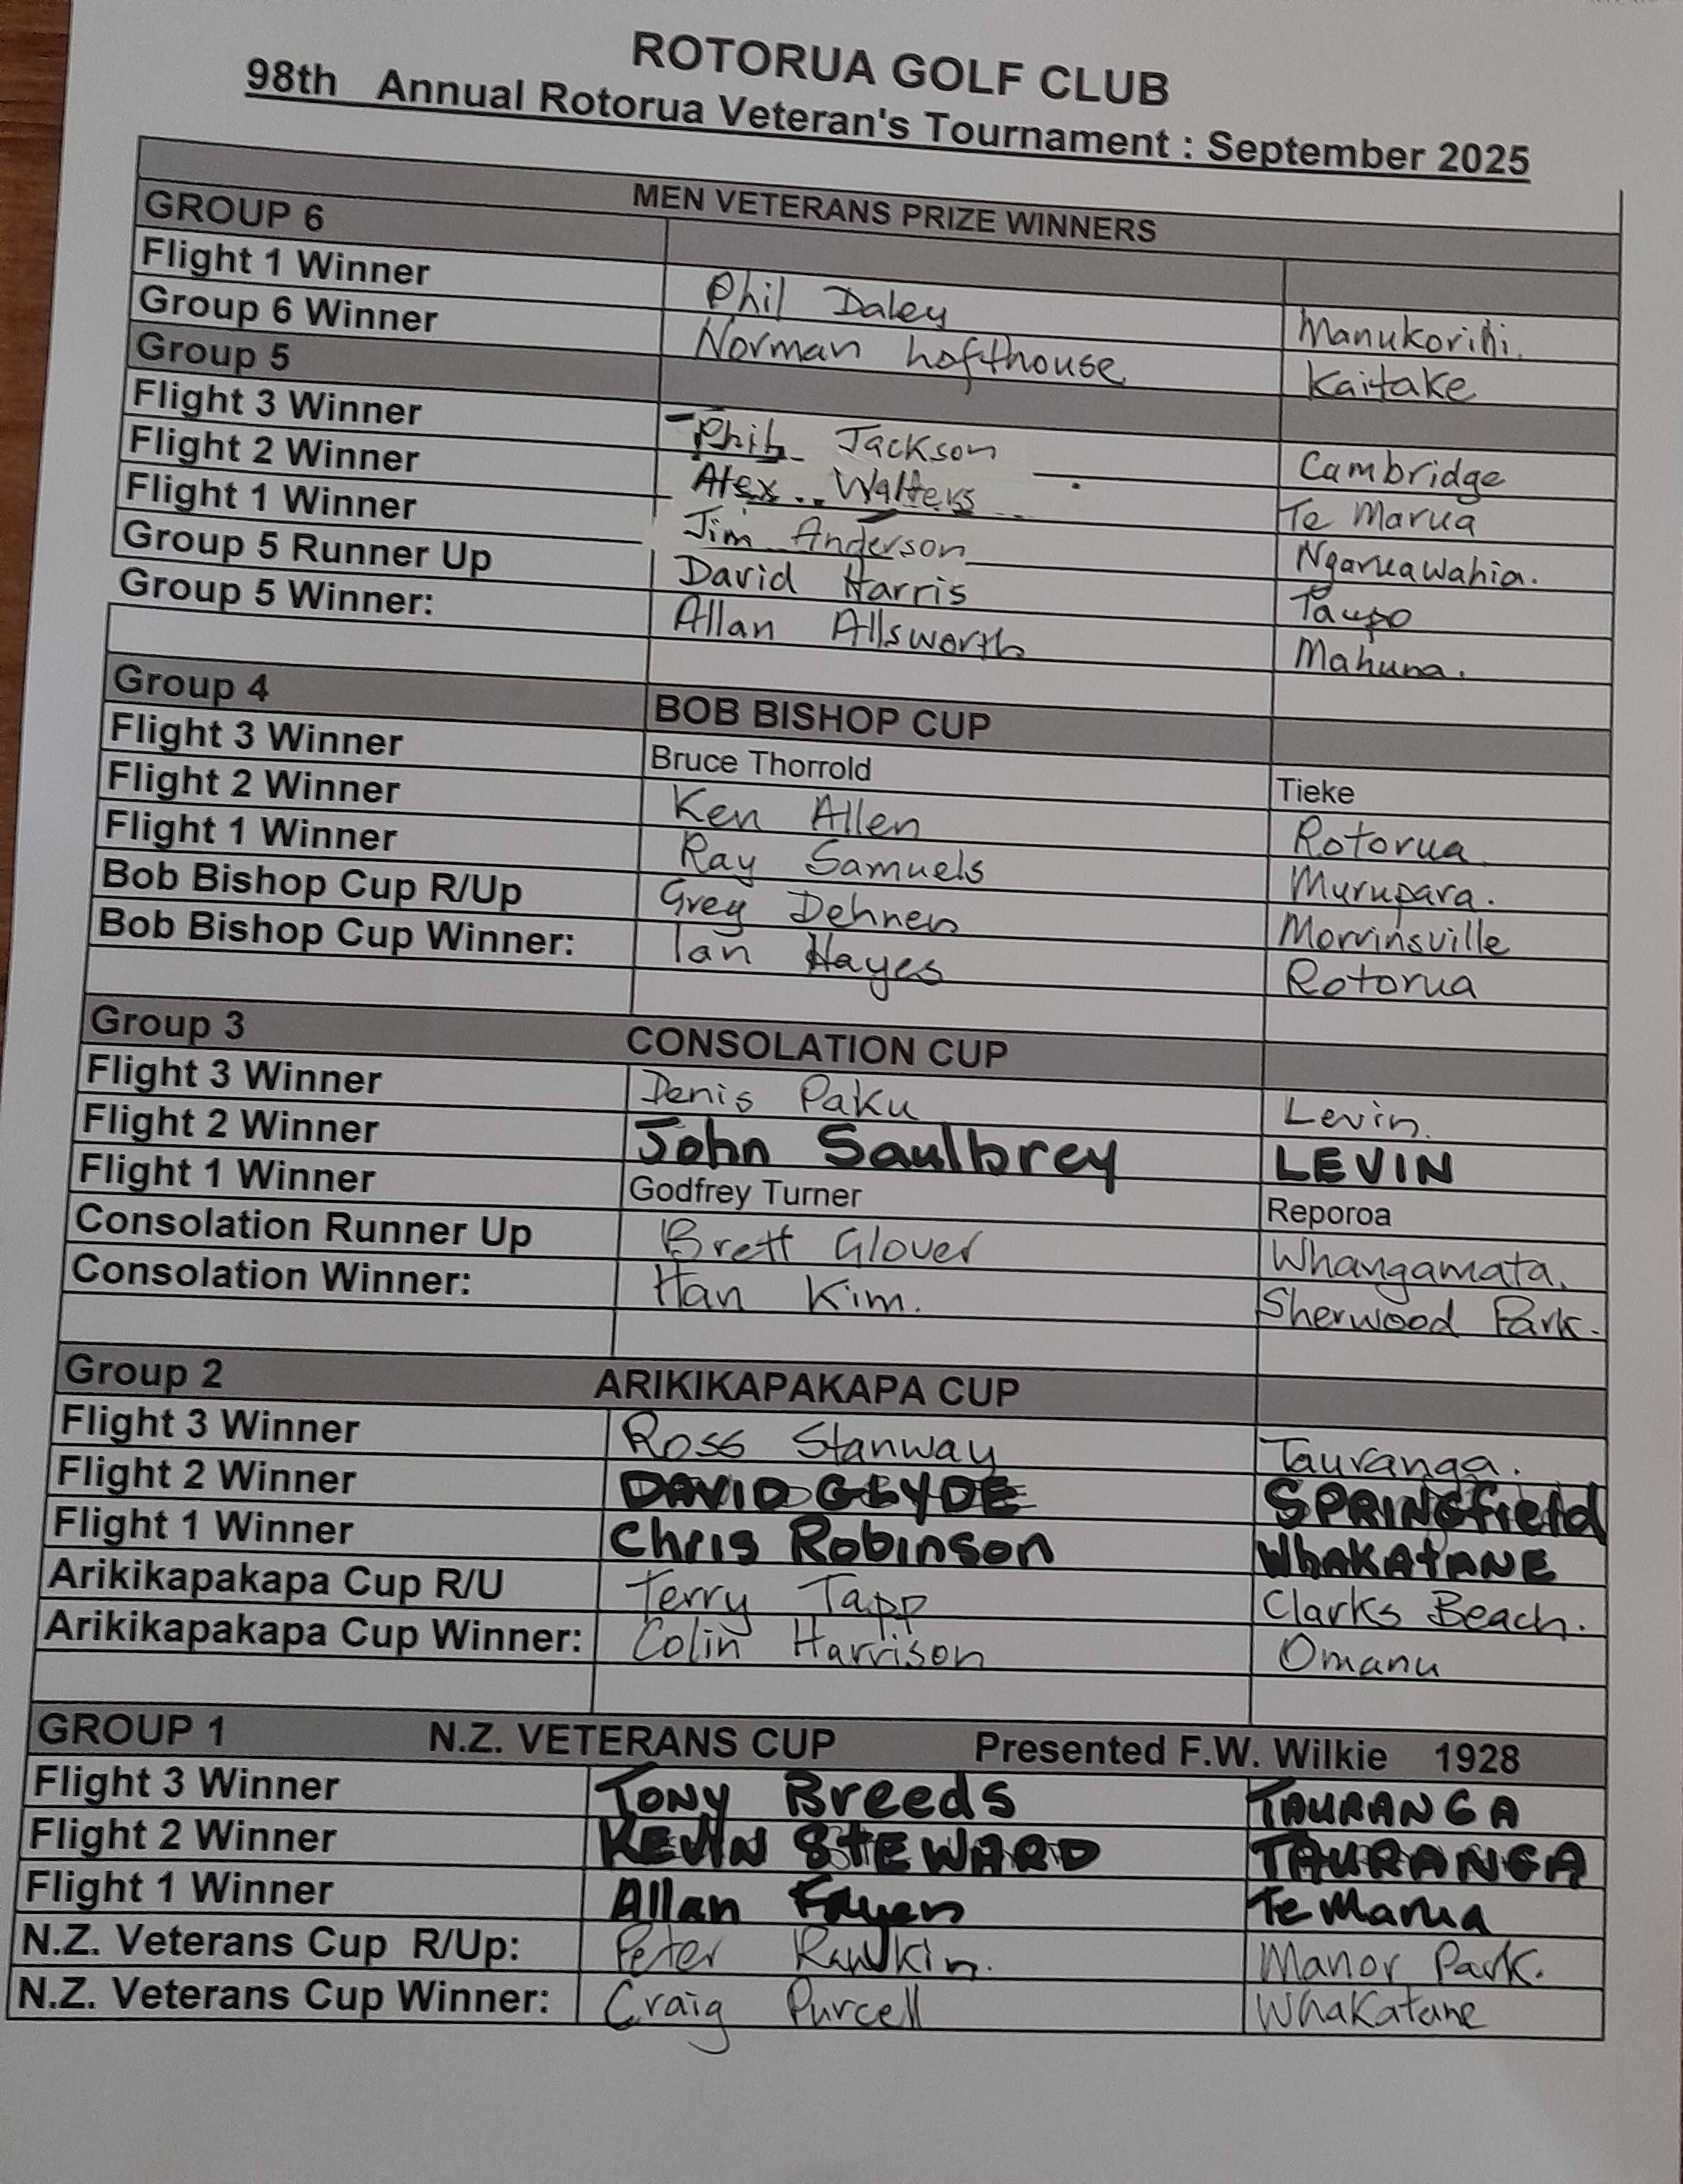 ROTORUA GOLF CLUB
98th Annual Rotorua Veteran's Tournament : September 2025
MEN VETERANS PRIZE WINNERS
GROUP 6
Flight 1 Winner Phil Daley Manukorihi.
Group 6 Winner Norman Lofthouse Kaitake
Group 5
Flight 3 Winner Phil Jackson Cambridge
Flight 2 Winner Alex Walters Te Marua
Flight 1 Winner Jim Anderson Ngaruawahia.
Group 5 Runner Up David Harris Taupo
Group 5 Winner: Allan Allsworth Mahuna.
Group 4 BOB BISHOP CUP
Flight 3 Winner Bruce Thorrold Tieke
Flight 2 Winner Ken Allen Rotorua
Flight 1 Winner Ray Samuels Murupara.
Bob Bishop Cup R/Up Greg Dehnen Morrinsville
Bob Bishop Cup Winner: Ian Hayes Rotorua
Group 3 CONSOLATION CUP
Flight 3 Winner Denis Paku Levin.
Flight 2 Winner John Saulbrey LEVIN
Flight 1 Winner Godfrey Turner Reporoa
Consolation Runner Up Brett Glover Whangamata.
Consolation Winner: Han Kim. Sherwood Park.
Group 2 ARIKIKAPAKAPA CUP
Flight 3 Winner Ross Stanway Tauranga.
Flight 2 Winner DAVID GLYDE SPRINGfield
Flight 1 Winner Chris Robinson WhAKATANE
Arikikapakapa Cup R/U Terry Tapp Clarks Beach.
Arikikapakapa Cup Winner: Colin Harrison Omanu
GROUP 1 N.Z. VETERANS CUP Presented F.W. Wilkie 1928
Flight 3 Winner Tony Breeds TAURANGA
Flight 2 Winner KEVIN STEWARD TAURANGA
Flight 1 Winner Allan Te Marua
N.Z. Veterans Cup R/Up: Peter Manor Park.
N.Z. Veterans Cup Winner: Craig Purcell Whakatane